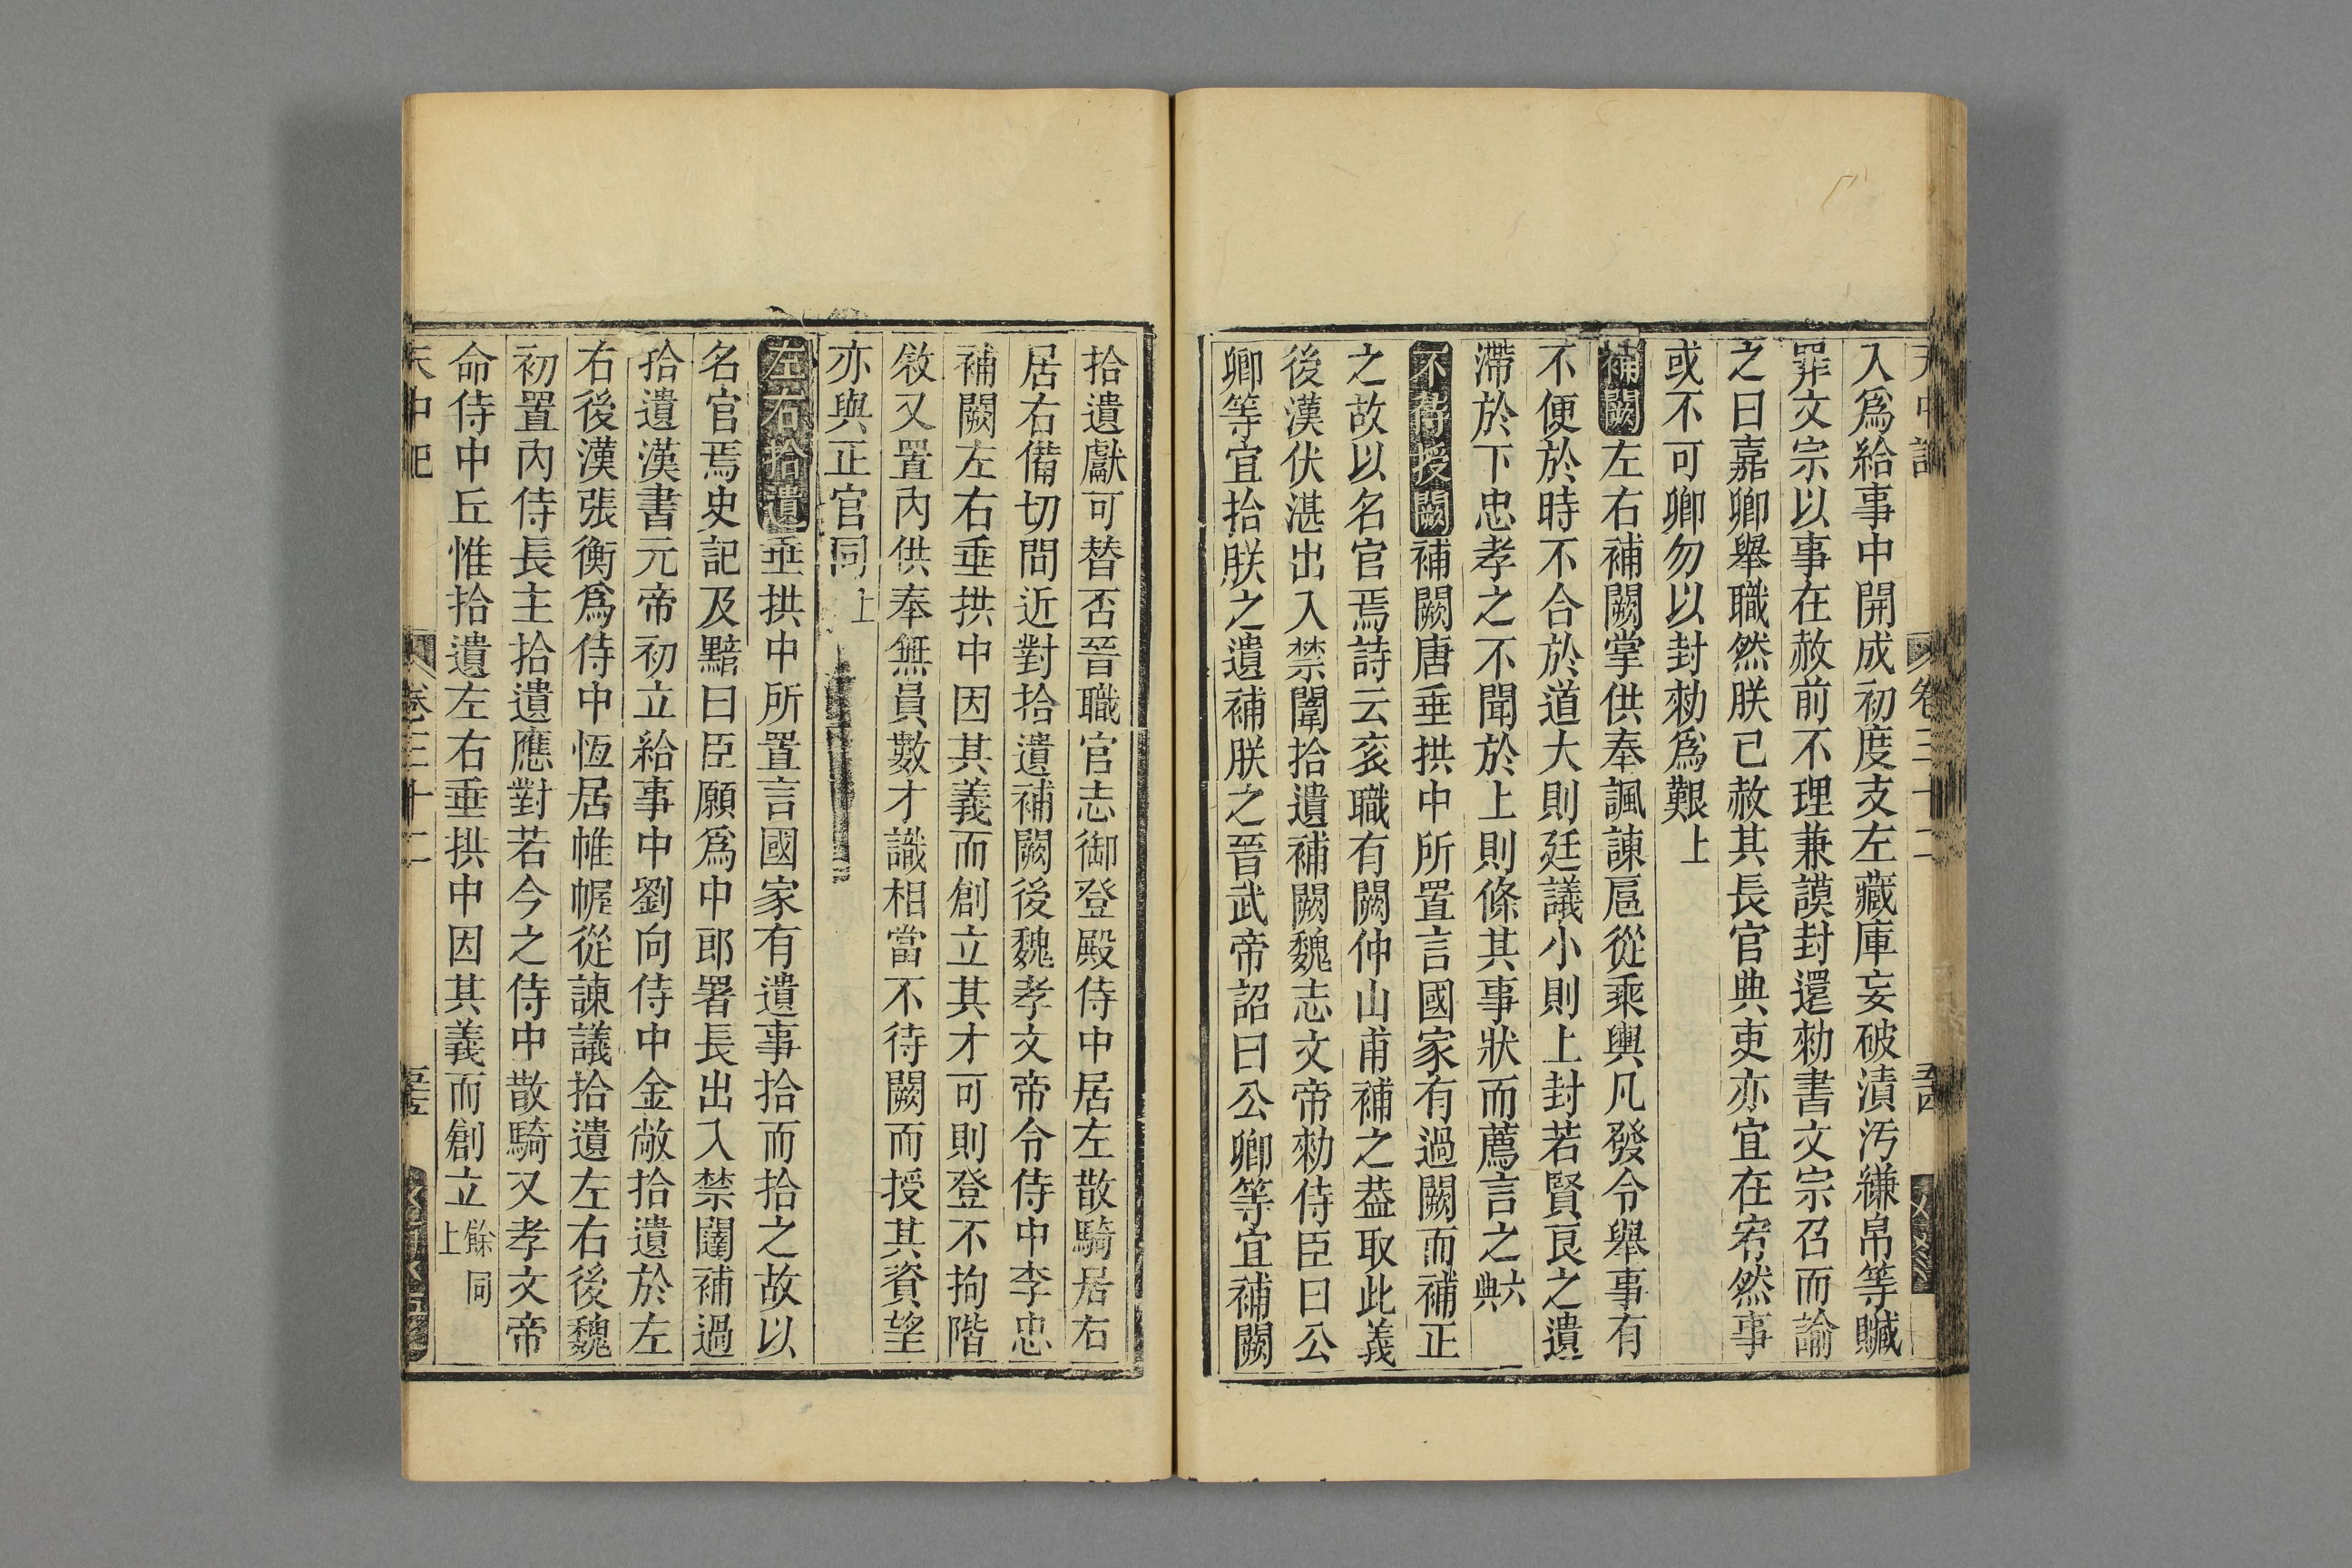 入爲給事中開成初度支左藏庫妄破漬汚縑帛等贓
罪文宗以事在赦前不理兼謨封還勑書文宗召而諭
之曰嘉卿舉職然朕已赦其長官典吏亦宜在宥然事
或不可卿勿以封勑爲艱上
補闕左右補闕掌供奉諷諫扈從乘輿凡發令舉事有
不便於時不合於道大則廷議小則上封若賢良之遺
滯於下忠孝之不聞於上則條其事狀而薦言之六典
不待授闕補闕唐垂拱中所置言國家有過闕而補正
之故以名官焉詩云衮職有闕仲山甫補之葢取此義
後漢伏湛出入禁闈拾遺補闕魏志文帝勑侍臣曰公
卿等宜拾朕之遺補朕之晉武帝詔曰公卿等宜補闕
拾遺獻可替否晉職官志御登殿侍中居左散騎居右
居右備切問近對拾遺補闕後魏孝文帝令侍中李忠
補闕左右垂拱中因其義而創立其才可則登不拘階
敘又置內供奉無員數才識相當不待闕而授其資望
亦與正官同上
左右拾遺垂拱中所置言國家有遺事拾而拾之故以
名官焉史記及黯曰臣願爲中郎署長出入禁闥補過
拾遺漢書元帝初立給事中劉向侍中金敞拾遺於左
右後漢張衡爲侍中恆居帷幄從諫議拾遺左右後魏
初置內侍長主拾遺應對若今之侍中散騎又孝文帝
命侍中丘惟拾遺左右垂拱中因其義而創立餘同上
天中記 卷三十二